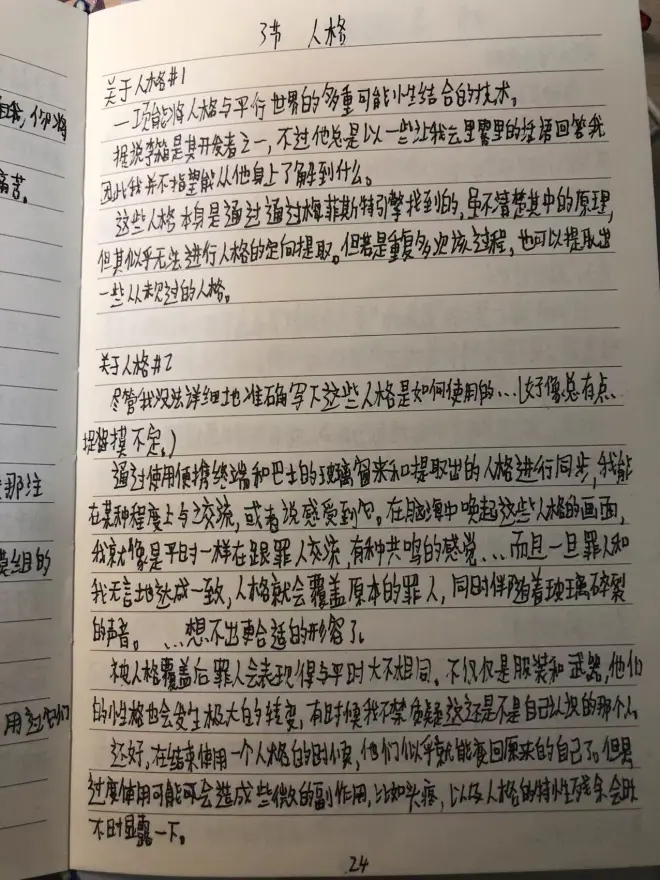 3节 人格
关于人格#1
一项能将人格与平行世界的多重可能性结合的技术。
据说李箱是其开发者之一，不过他总是以一些让我云里雾里的话语回答我
因此我并不指望能从他身上了解到什么。
这些人格本身是通过通过梅菲斯特引擎找到的，虽不清楚其中的原理，
但其似乎无法进行人格的定向提取。但若是重复多次该过程，也可以提取出
一些从未见过的人格。
关于人格#2
尽管我没法详细地准确写下这些人格是如何使用的…（好像总有点
捉摸不定。）
通过使用便携终端和巴士的玻璃窗来和提取出的人格进行同步，我能
在某种程度上与之交流，或者说感受到吧。在脑海中唤起这些人格的画面，
我就像是平时一样在跟罪人交流，有种共鸣的感觉…而且一旦罪人和
我无言地达成一致，人格就会覆盖原本的罪人，同时伴随着玻璃碎裂
的声音。…想不出更合适的形容了。
被人格覆盖后罪人会表现得与平时大不相同。不仅仅是服装和武器，他们
的性格也会发生极大的转变，有时使我不禁质疑这还是不是自己认识的那个人。
还好，在结束使用一个人格的时候，他们似乎就能变回原来的自己了。但是
过度使用可能会造成些微的副作用，比如头疼，以及人格的特性残余会时
不时显露一下。
24
自我，你将
痛苦。
那注
模组的
用过它们